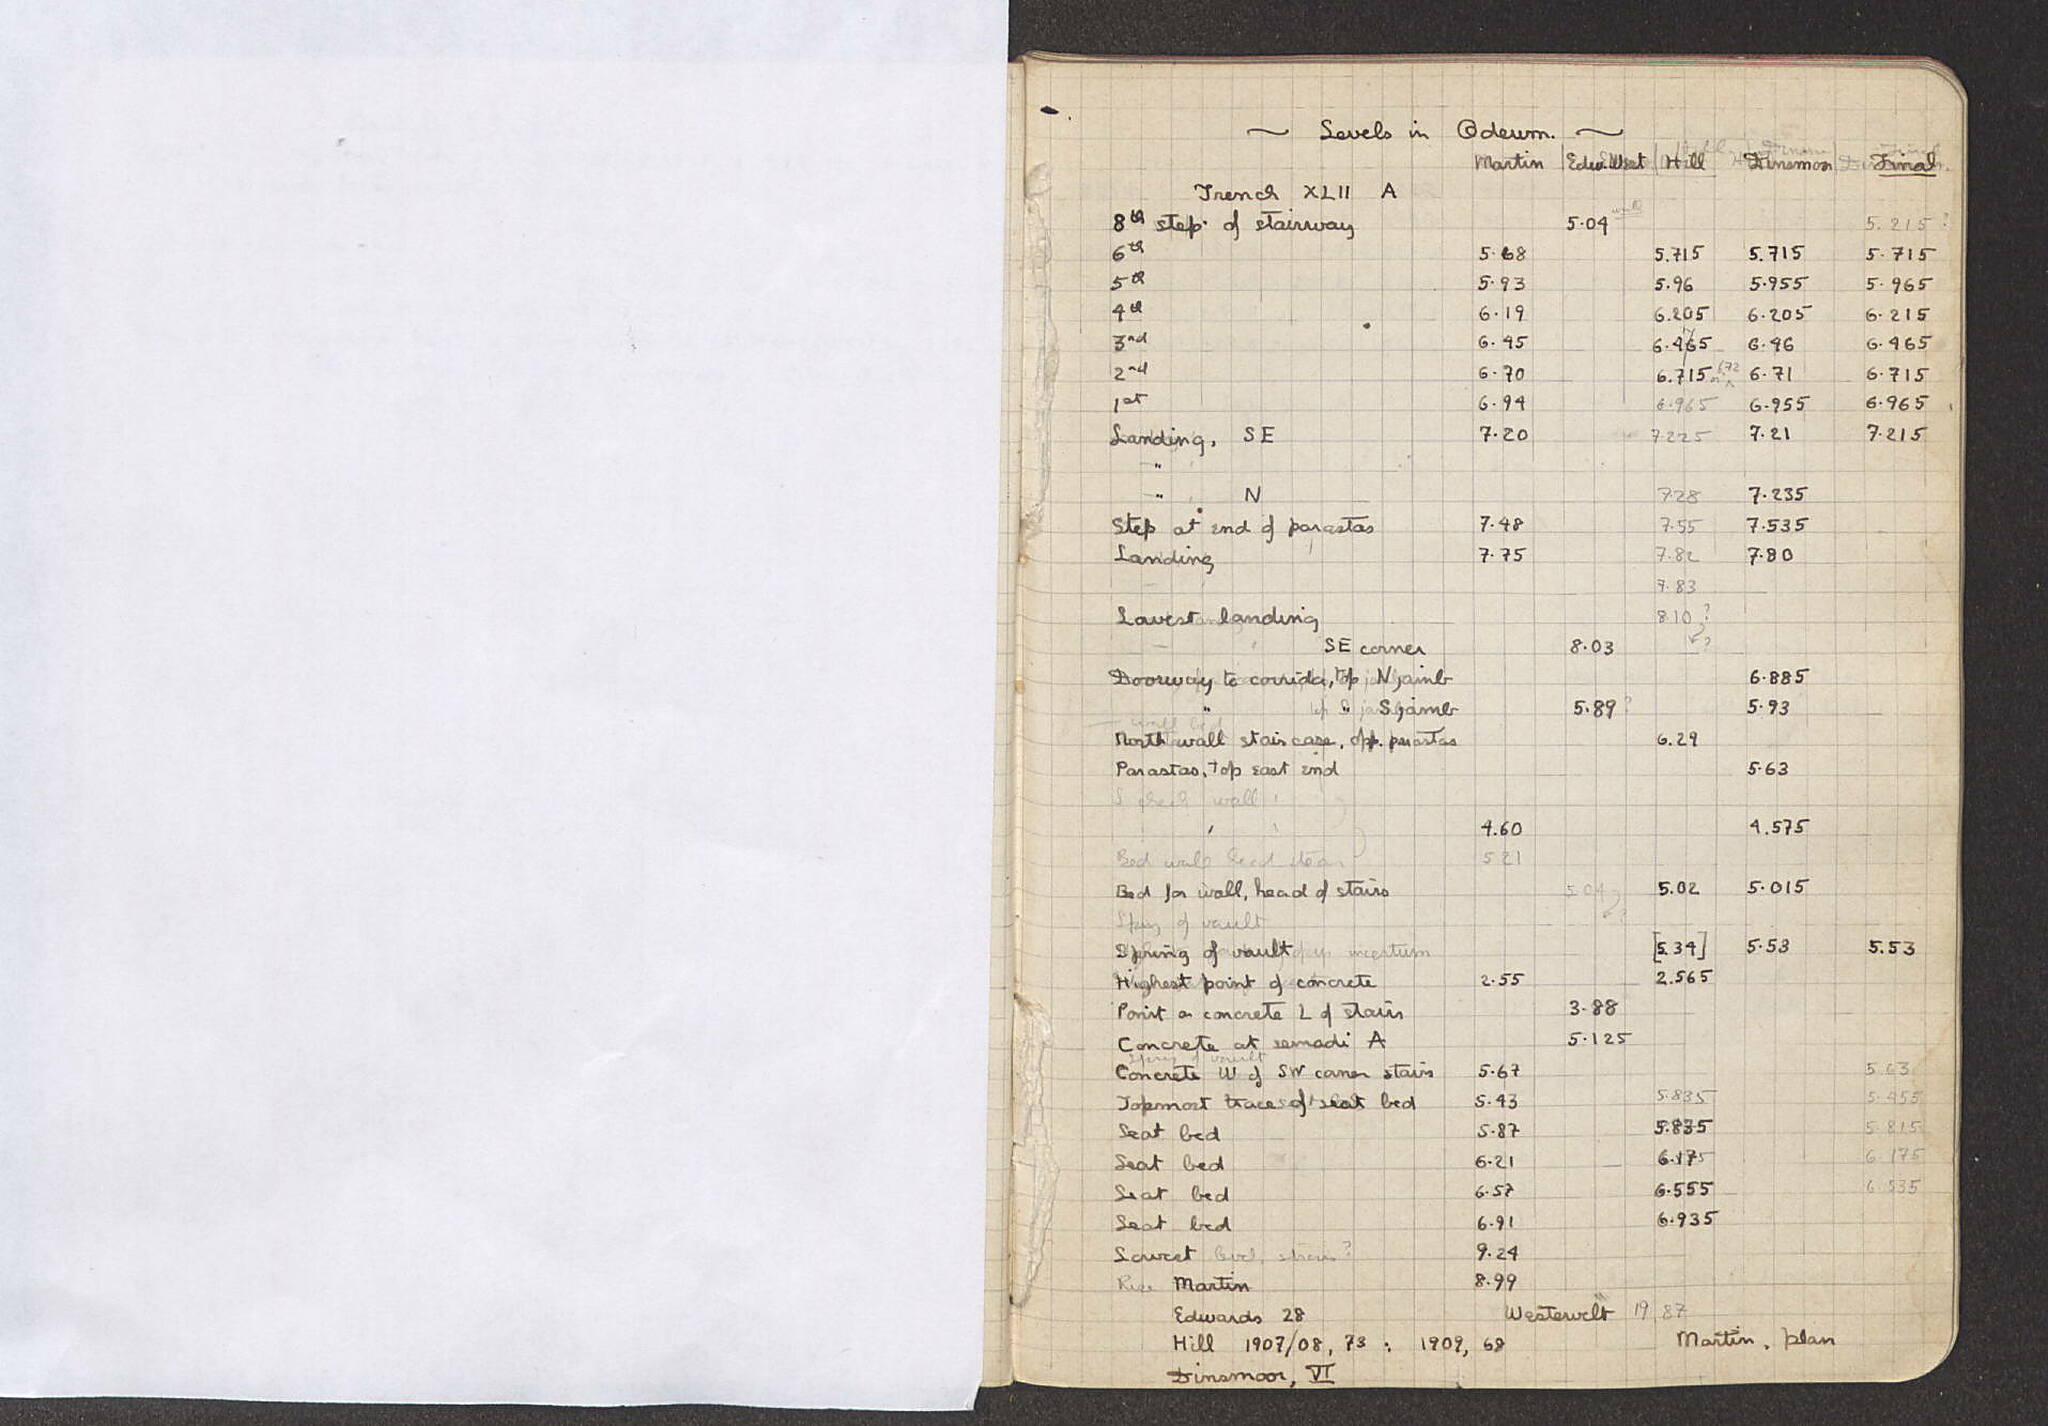 ~ Levels in Odeum. ~
Martin Edw. West Hill Dinsmoor Final
Trench XLII A
8th step of stairway 5.04 wall 5.215?
6th 5.68 5.715 5.715 5.715
5th 5.93 5.96 5.955 5.965
4th 6.19 6.205 6.205 6.215
3rd 6.45 6.465 6.46 6.465
2nd 6.70 6.715 6.71 6.715
1st 6.94 6.965 6.955 6.965
Landing, SE 7.20 7.225 7.21 7.215
"
" N 7.28 7.235
Step at end of parastas 7.48 7.55 7.535
Landing 7.75 7.82 7.80
7.83
Lowest landing 8.10?
SE corner 8.03 ?
Doorway to corridor, top N jamb 6.885
" " S jamb 5.89? 5.93
North wall staircase, opp. parastas 6.29
Parastas, top east end 5.63
wall
4.60 4.575
Bed wall head stairs 5.21
Bed for wall, head of stairs 5.04 5.02 5.015
Spring of vault ?
Spring of vault [5.34] 5.53 5.53
Highest point of concrete 2.55 2.565
Point on concrete L of stairs 3.88
Concrete at A 5.125
Spring of vault
Concrete W of SW corner stairs 5.67 5.63
Topmost trace of seat bed 5.43 5.835 5.455
Seat bed 5.87 5.835 5.815
Seat bed 6.21 6.175 6.175
Seat bed 6.57 6.555 6.535
Seat bed 6.91 6.935
Lowest ? 9.24
Martin 8.99
Edwards 28 Westervelt 19, 87
Hill 1907/08, 73; 1909, 68 Martin, plan
Dinsmoor, VI